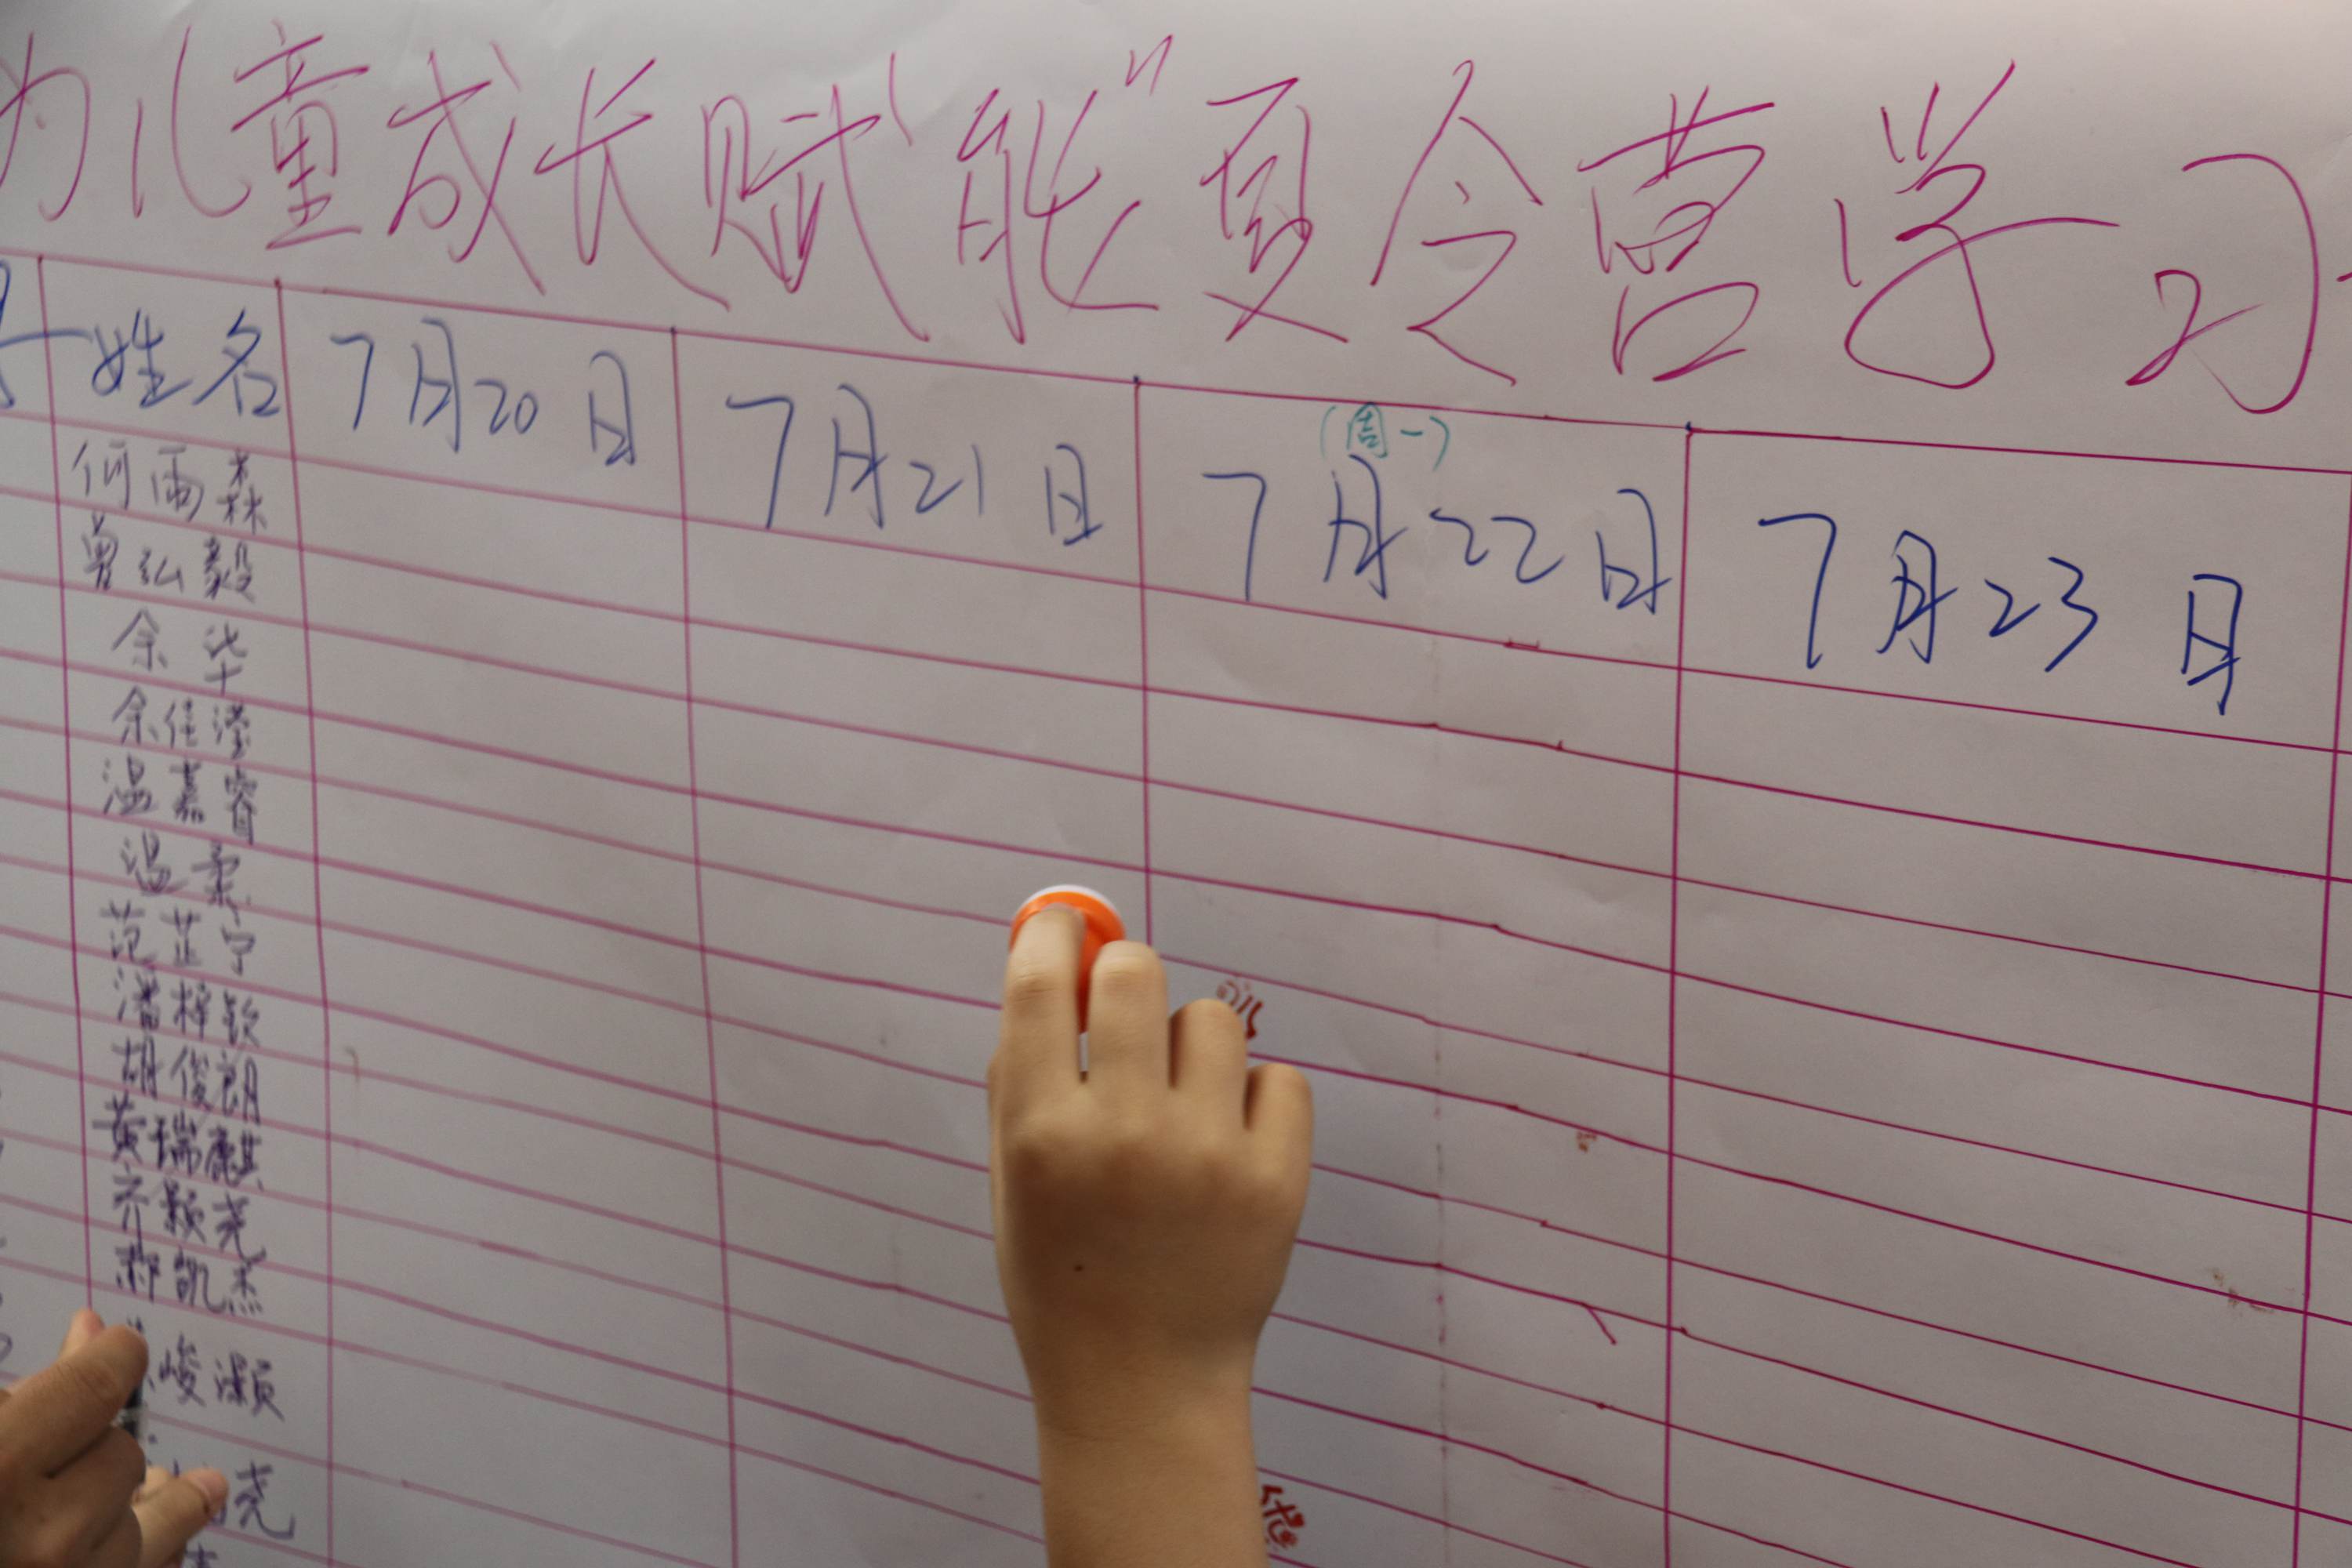 为儿童成长赋“能”夏令营学习
姓名 7月20日 7月21日 7月22日 7月23日
(周一)
何雨森
曾弘毅
余华
余佳滢
温嘉睿
温柔
范芷宁
潘梓钦
胡俊朗
黄瑞麒
齐颢尧
郝凯杰
峻灏
尧